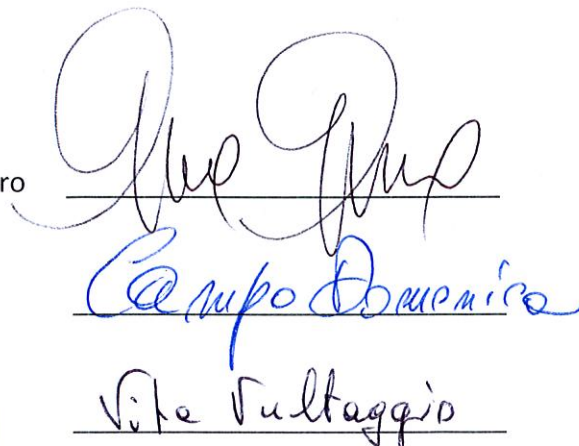 ro
Campo Domenica
Vita Vultaggio